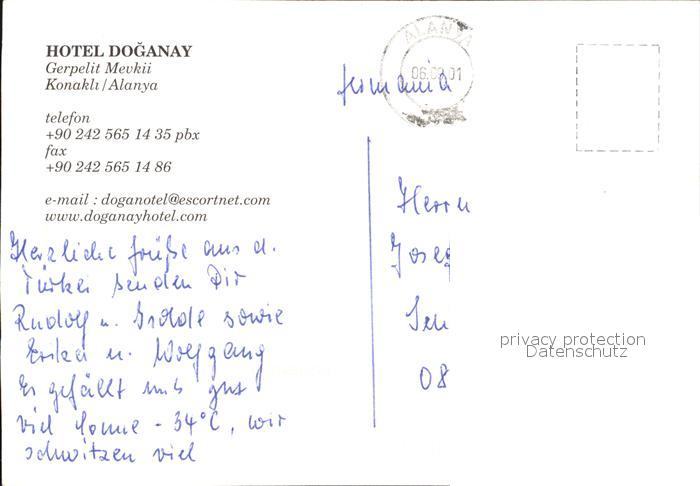 HOTEL DOĞANAY
Gerpelit Mevkii
Konaklı/Alanya
telefon
+90 242 565 14 35 pbx
fax
+90 242 565 14 86
e-mail : doganotel@escortnet.com
www.doganayhotel.com
Herzliche Grüße aus d.
Türkei senden Dir
Rudolf u. Isolde sowie
Erika u. Wolfgang
Es gefällt uns gut
viel Sonne - 34°C, wir
schwitzen viel
ALANYA
06.09.01
Germania
Herrn
Josef
08
privacy protection
Datenschutz